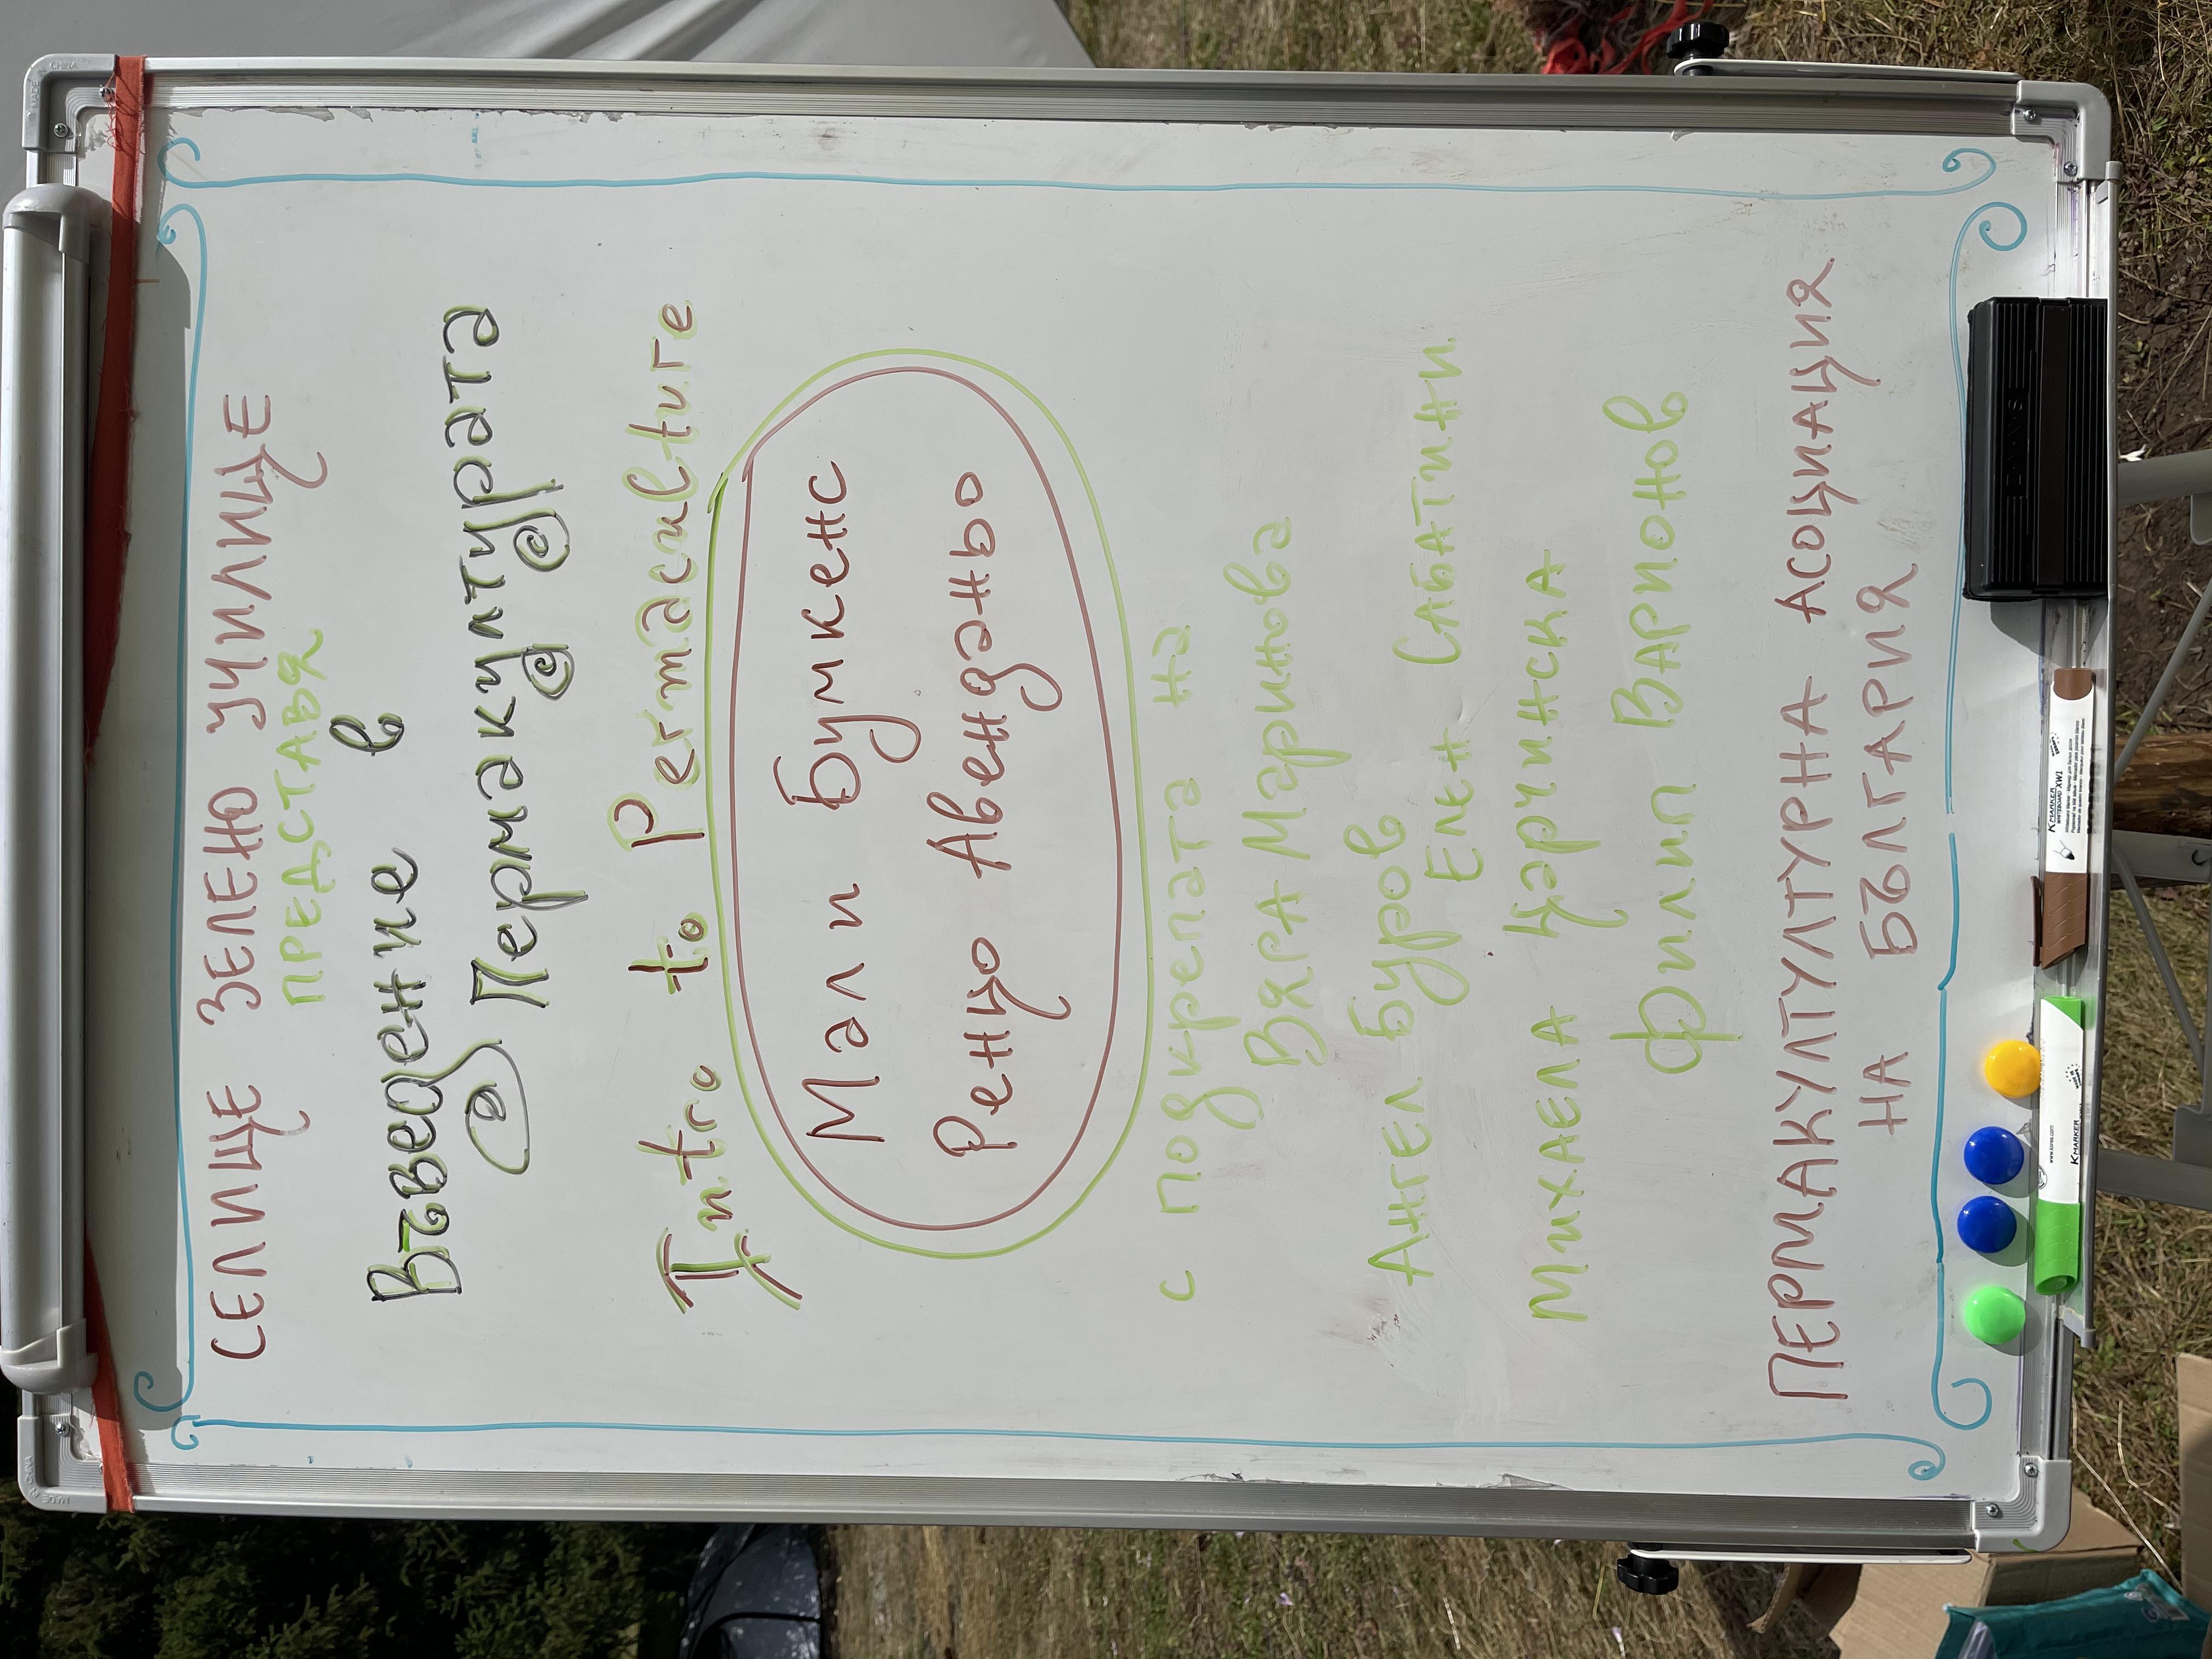 СЕЛИЩЕ ЗЕЛЕНО УЧИЛИЩЕ
ПРЕДСТАВЯ
Въведение в
Пермакултурата
Intro to Permaculture
Мал и Бумкенс
Ренцо Авенданьо
с подкрепата на
Вяра Маринова
Ангел Буров
Елен Сабатини
Михаела Царчинска
Филип Варионов
ПЕРМАКУЛТУЛТУРНА АСОЦИАЦИЯ
НА БЪЛГАРИЯ
KMARKER
WHITEBOARD XW1
www.kores.com
KMARKER
MADE IN CHINA